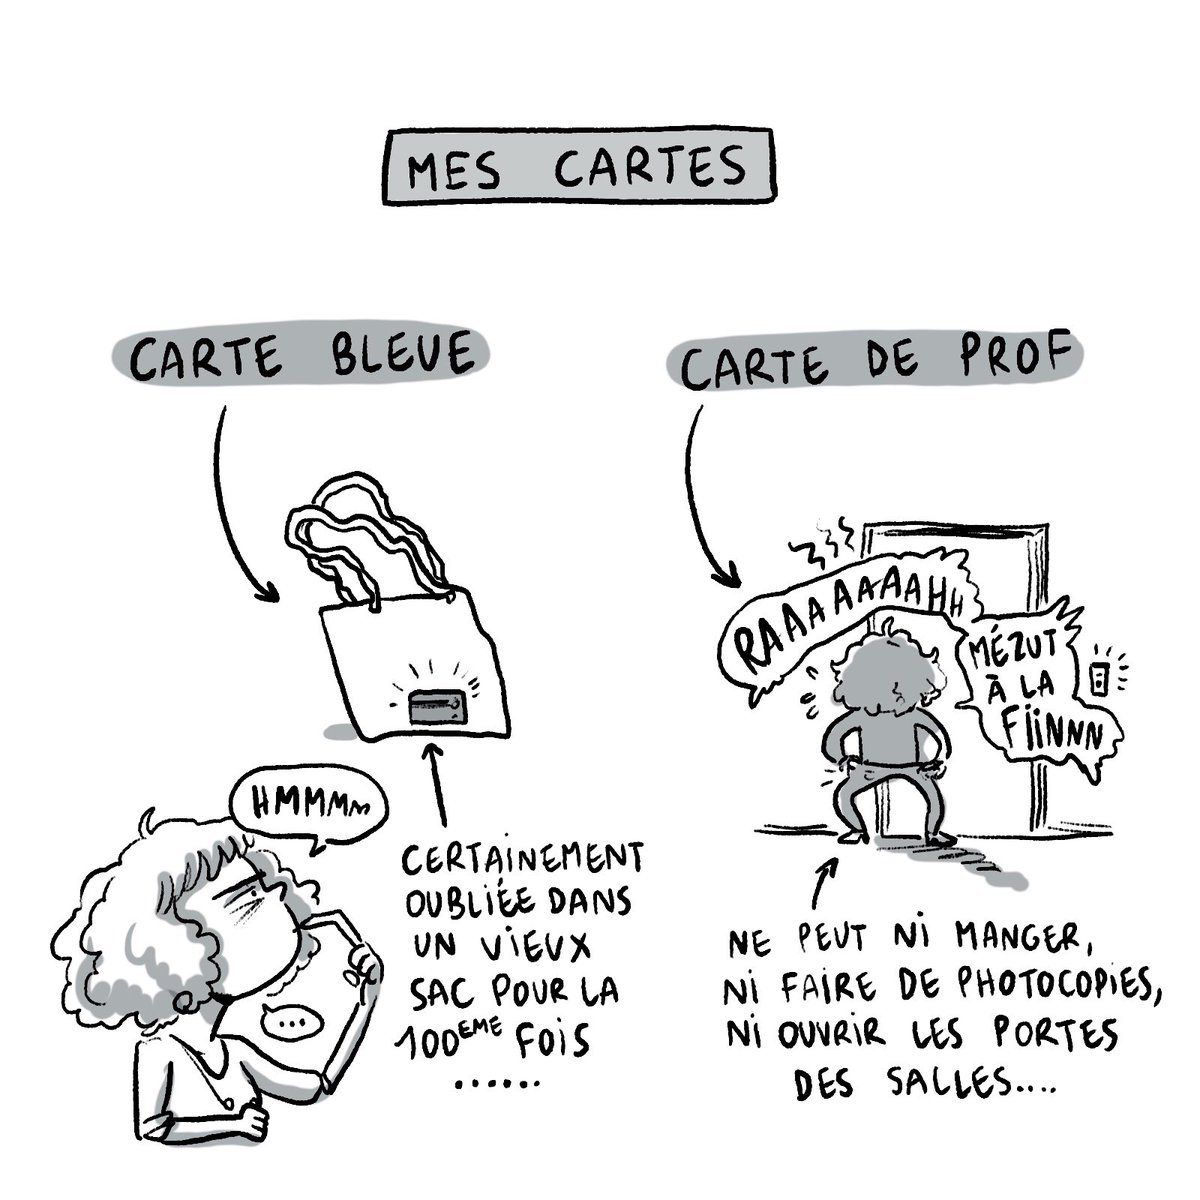 MES CARTES
CARTE BLEUE
HMMMMM
CERTAINEMENT
OUBLIÉE DANS
UN VIEUX
SAC POUR LA
100EME FOIS
......
...
CARTE DE PROF
RAAAAAAAHH
MÉZUT
À LA
FIINNN
NE PEUT NI MANGER,
NI FAIRE DE PHOTOCOPIES,
NI OUVRIR LES PORTES
DES SALLES....